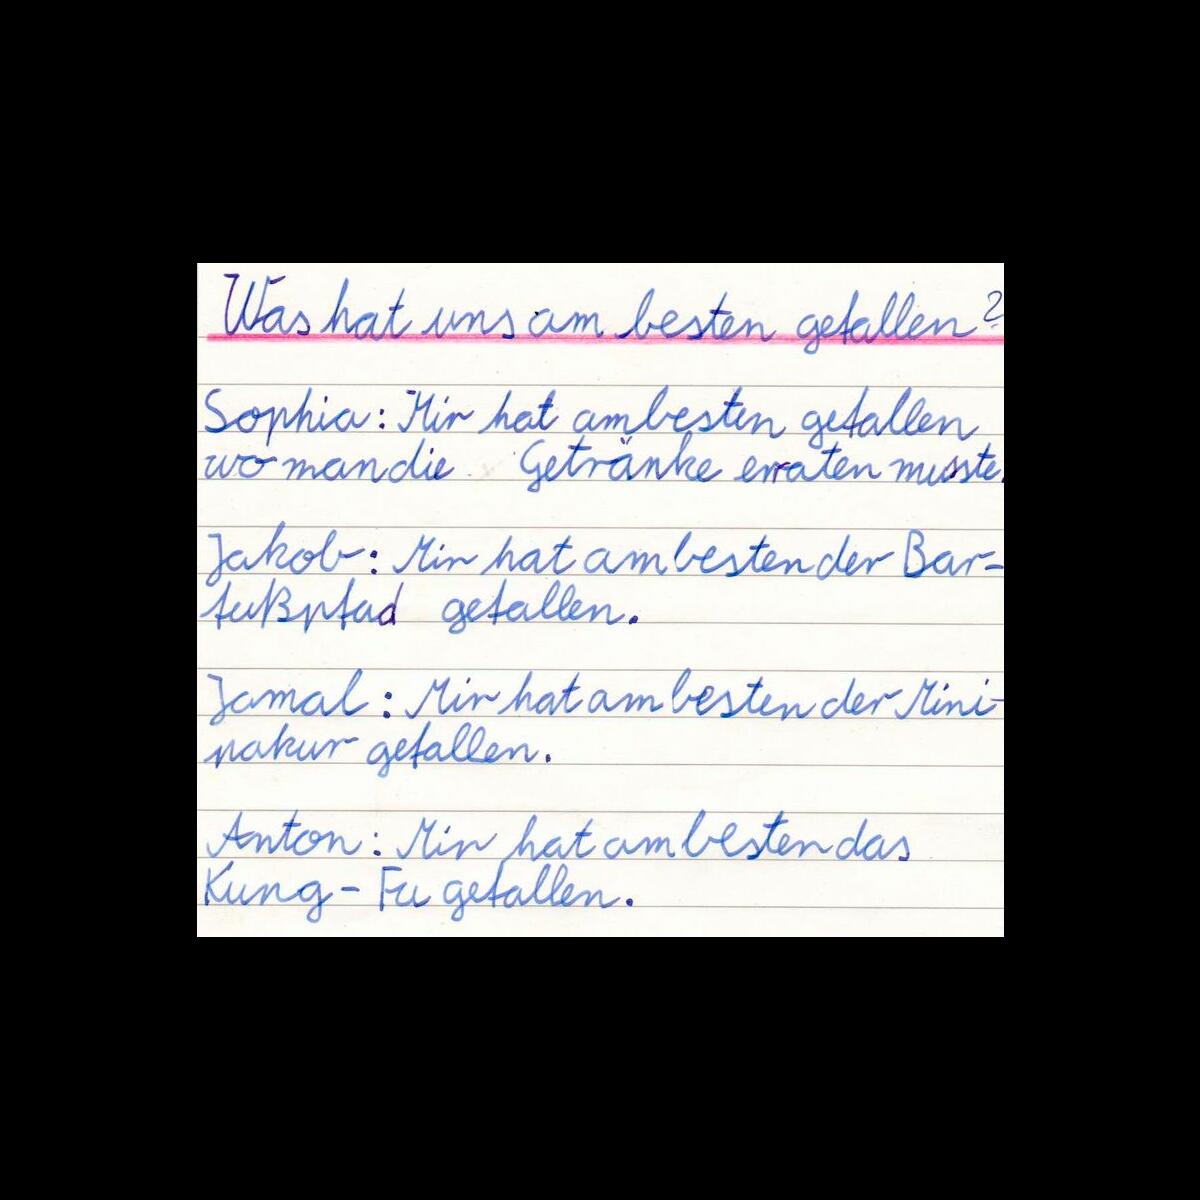 Was hat uns am besten gefallen?
Sophia: Mir hat am besten gefallen
wo man die Getränke erraten musste.
Jakob: Mir hat am besten der Bar-
fußpfad gefallen.
Jamal: Mir hat am besten der Mini-
nakur gefallen.
Anton: Mir hat am besten das
Kung-Fu gefallen.